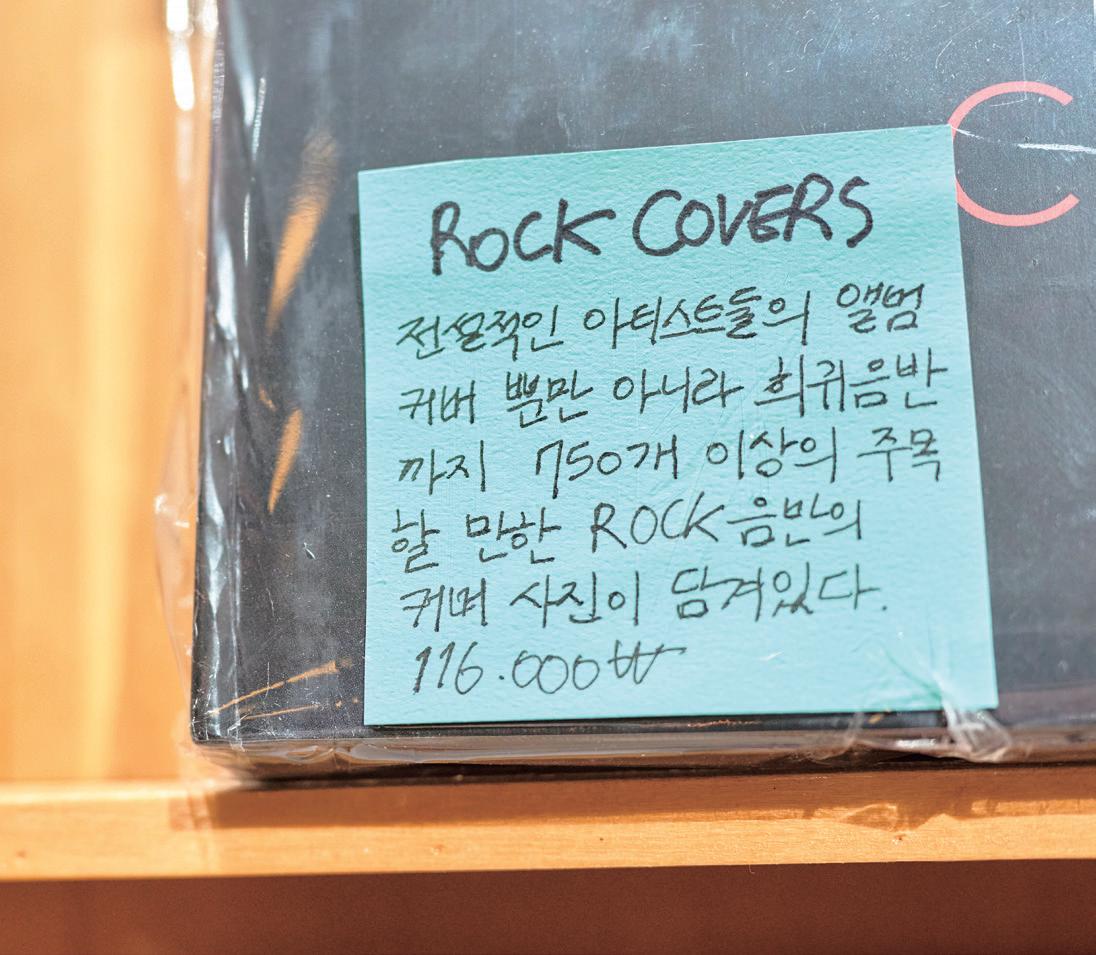 C
ROCK COVERS
전설적인 아티스트들의 앨범
커버 뿐만 아니라 희귀음반
까지 750개 이상의 주목
할 만한 ROCK음반의
커버 사진이 담겨있다.
116.000₩